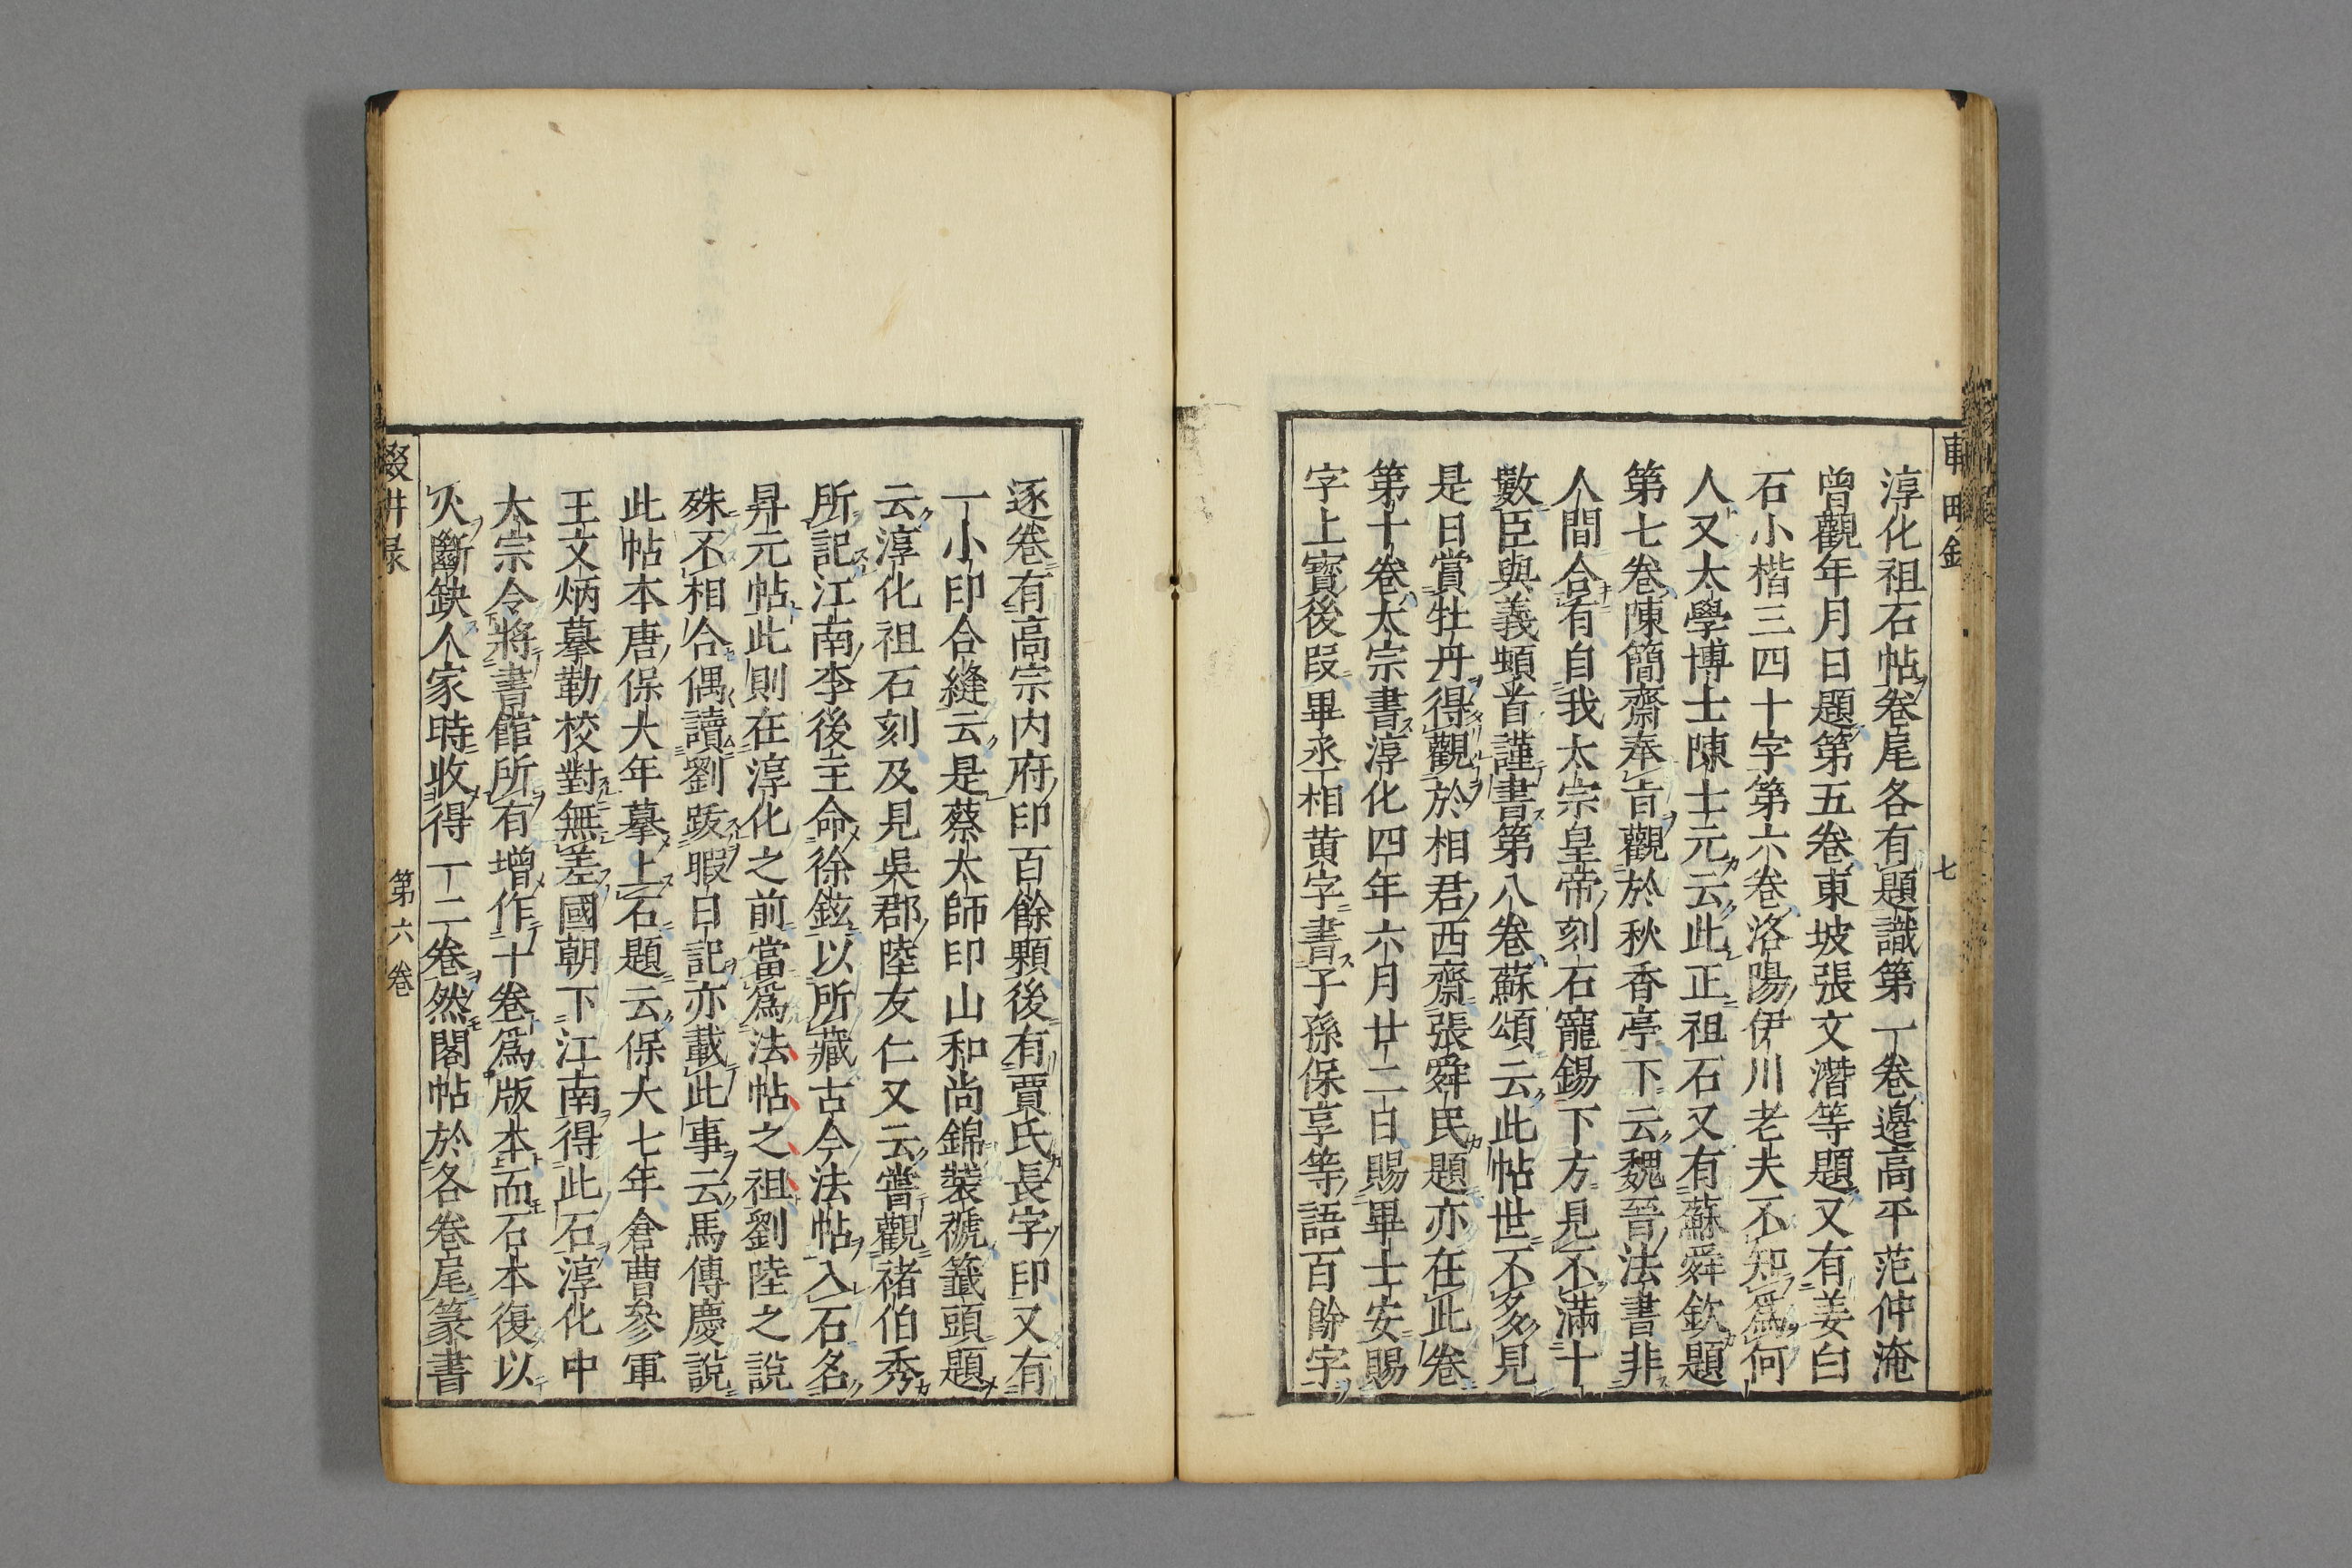 淳化祖石帖卷尾各有題識第一卷邉高平范仲淹
曾觀年月日題第五卷東坡張文潛等題又有姜白
石小楷三四十字第六卷洛陽伊川老夫不知爲何
人又太學博士陳士元云此正祖石又有蘇舜欽題
第七卷陳簡齋奉旨觀於秋香亭下云魏晉法書非
人間合有自我太宗皇帝刻石寵錫下方見不滿十
數臣與義頓首謹書第八卷蘇頌云此帖世不多見
是日賞牡丹得觀於相君西齋張舜民題亦在此卷
第十卷太宗書淳化四年六月廿二日賜畢士安賜
字上寳後叚畢丞相黄字書子孫保享等語百餘字
逐卷有高宗内府印百餘顆後有賈氏長字印又有
一小印合縫云是蔡太師印山和尚錦裝褫籤頭題
云淳化祖石刻及見吳郡陸友仁又云嘗觀禇伯秀
所記江南李後主命徐鉉以所藏古今法帖入石名
昇元帖此則在淳化之前當爲法帖之祖劉陸之說
殊不相合偶讀劉跂暇日記亦載此事云馬傳慶說
此帖本唐保大年摹上石題云保大七年倉曹參軍
王文炳摹勒校對無差國朝下江南得此石淳化中
太宗令將書館所有增作十卷爲版本而石本復以
火斷缺人家時收得一二卷然閣帖於各卷尾篆書
輟畊录
第六卷
七